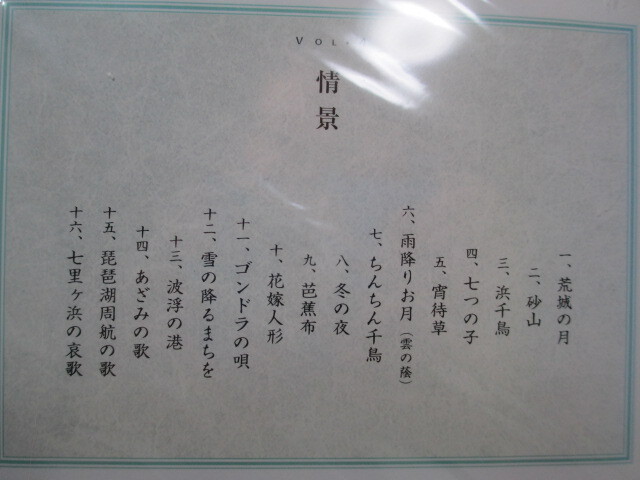 VOL.
情景
一、荒城の月
二、砂山
三、浜千鳥
四、七つの子
五、宵待草
六、雨降りお月（雲の蔭）
七、ちんちん千鳥
八、冬の夜
九、芭蕉布
十、花嫁人形
十一、ゴンドラの唄
十二、雪の降るまちを
十三、波浮の港
十四、あざみの歌
十五、琵琶湖周航の歌
十六、七里ヶ浜の哀歌